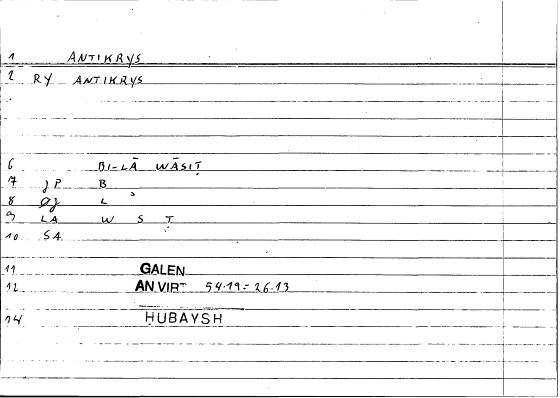 1 ANTIKRYS
2 RY ANTIKRYS
6 BI-LĀ WĀSIṬ
7 JP B
8 ØJ L
9 LA W S Ṭ
10 SA
11 GALEN
12 AN VIRT 54.19 = 26.13
14 ḤUBAYSH